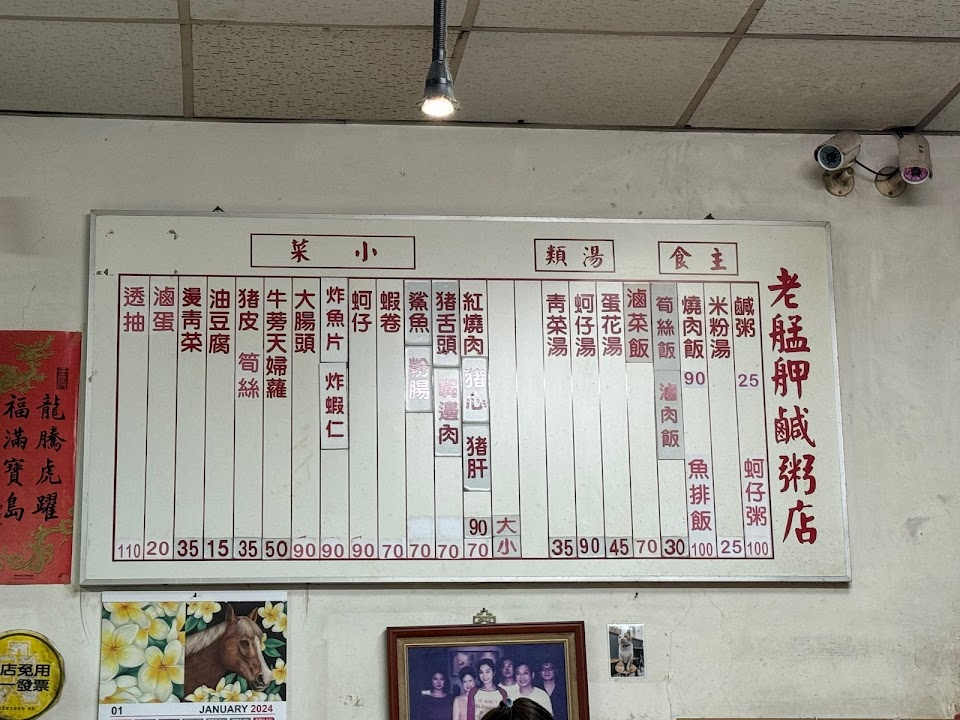 老艋舺鹹粥店
主食
鹹粥 25
蚵仔粥 100
米粉湯 25
燒肉飯 90
魚排飯 100
筍絲飯 滷肉飯 30
滷菜飯 70
湯類
蛋花湯 45
蚵仔湯 90
青菜湯 35
小菜
大 90
小 70
紅燒肉 豬心 豬肝
豬舌頭 嘴邊肉 70
鯊魚 粉腸 70
蝦卷 70
蚵仔 90
炸魚片 炸蝦仁 90
大腸頭 90
牛蒡天婦蘿 50
豬皮 筍絲 35
油豆腐 15
燙青菜 35
滷蛋 20
透抽 110
龍騰虎躍
福滿寶島
店免用
一發票
01 JANUARY 2024